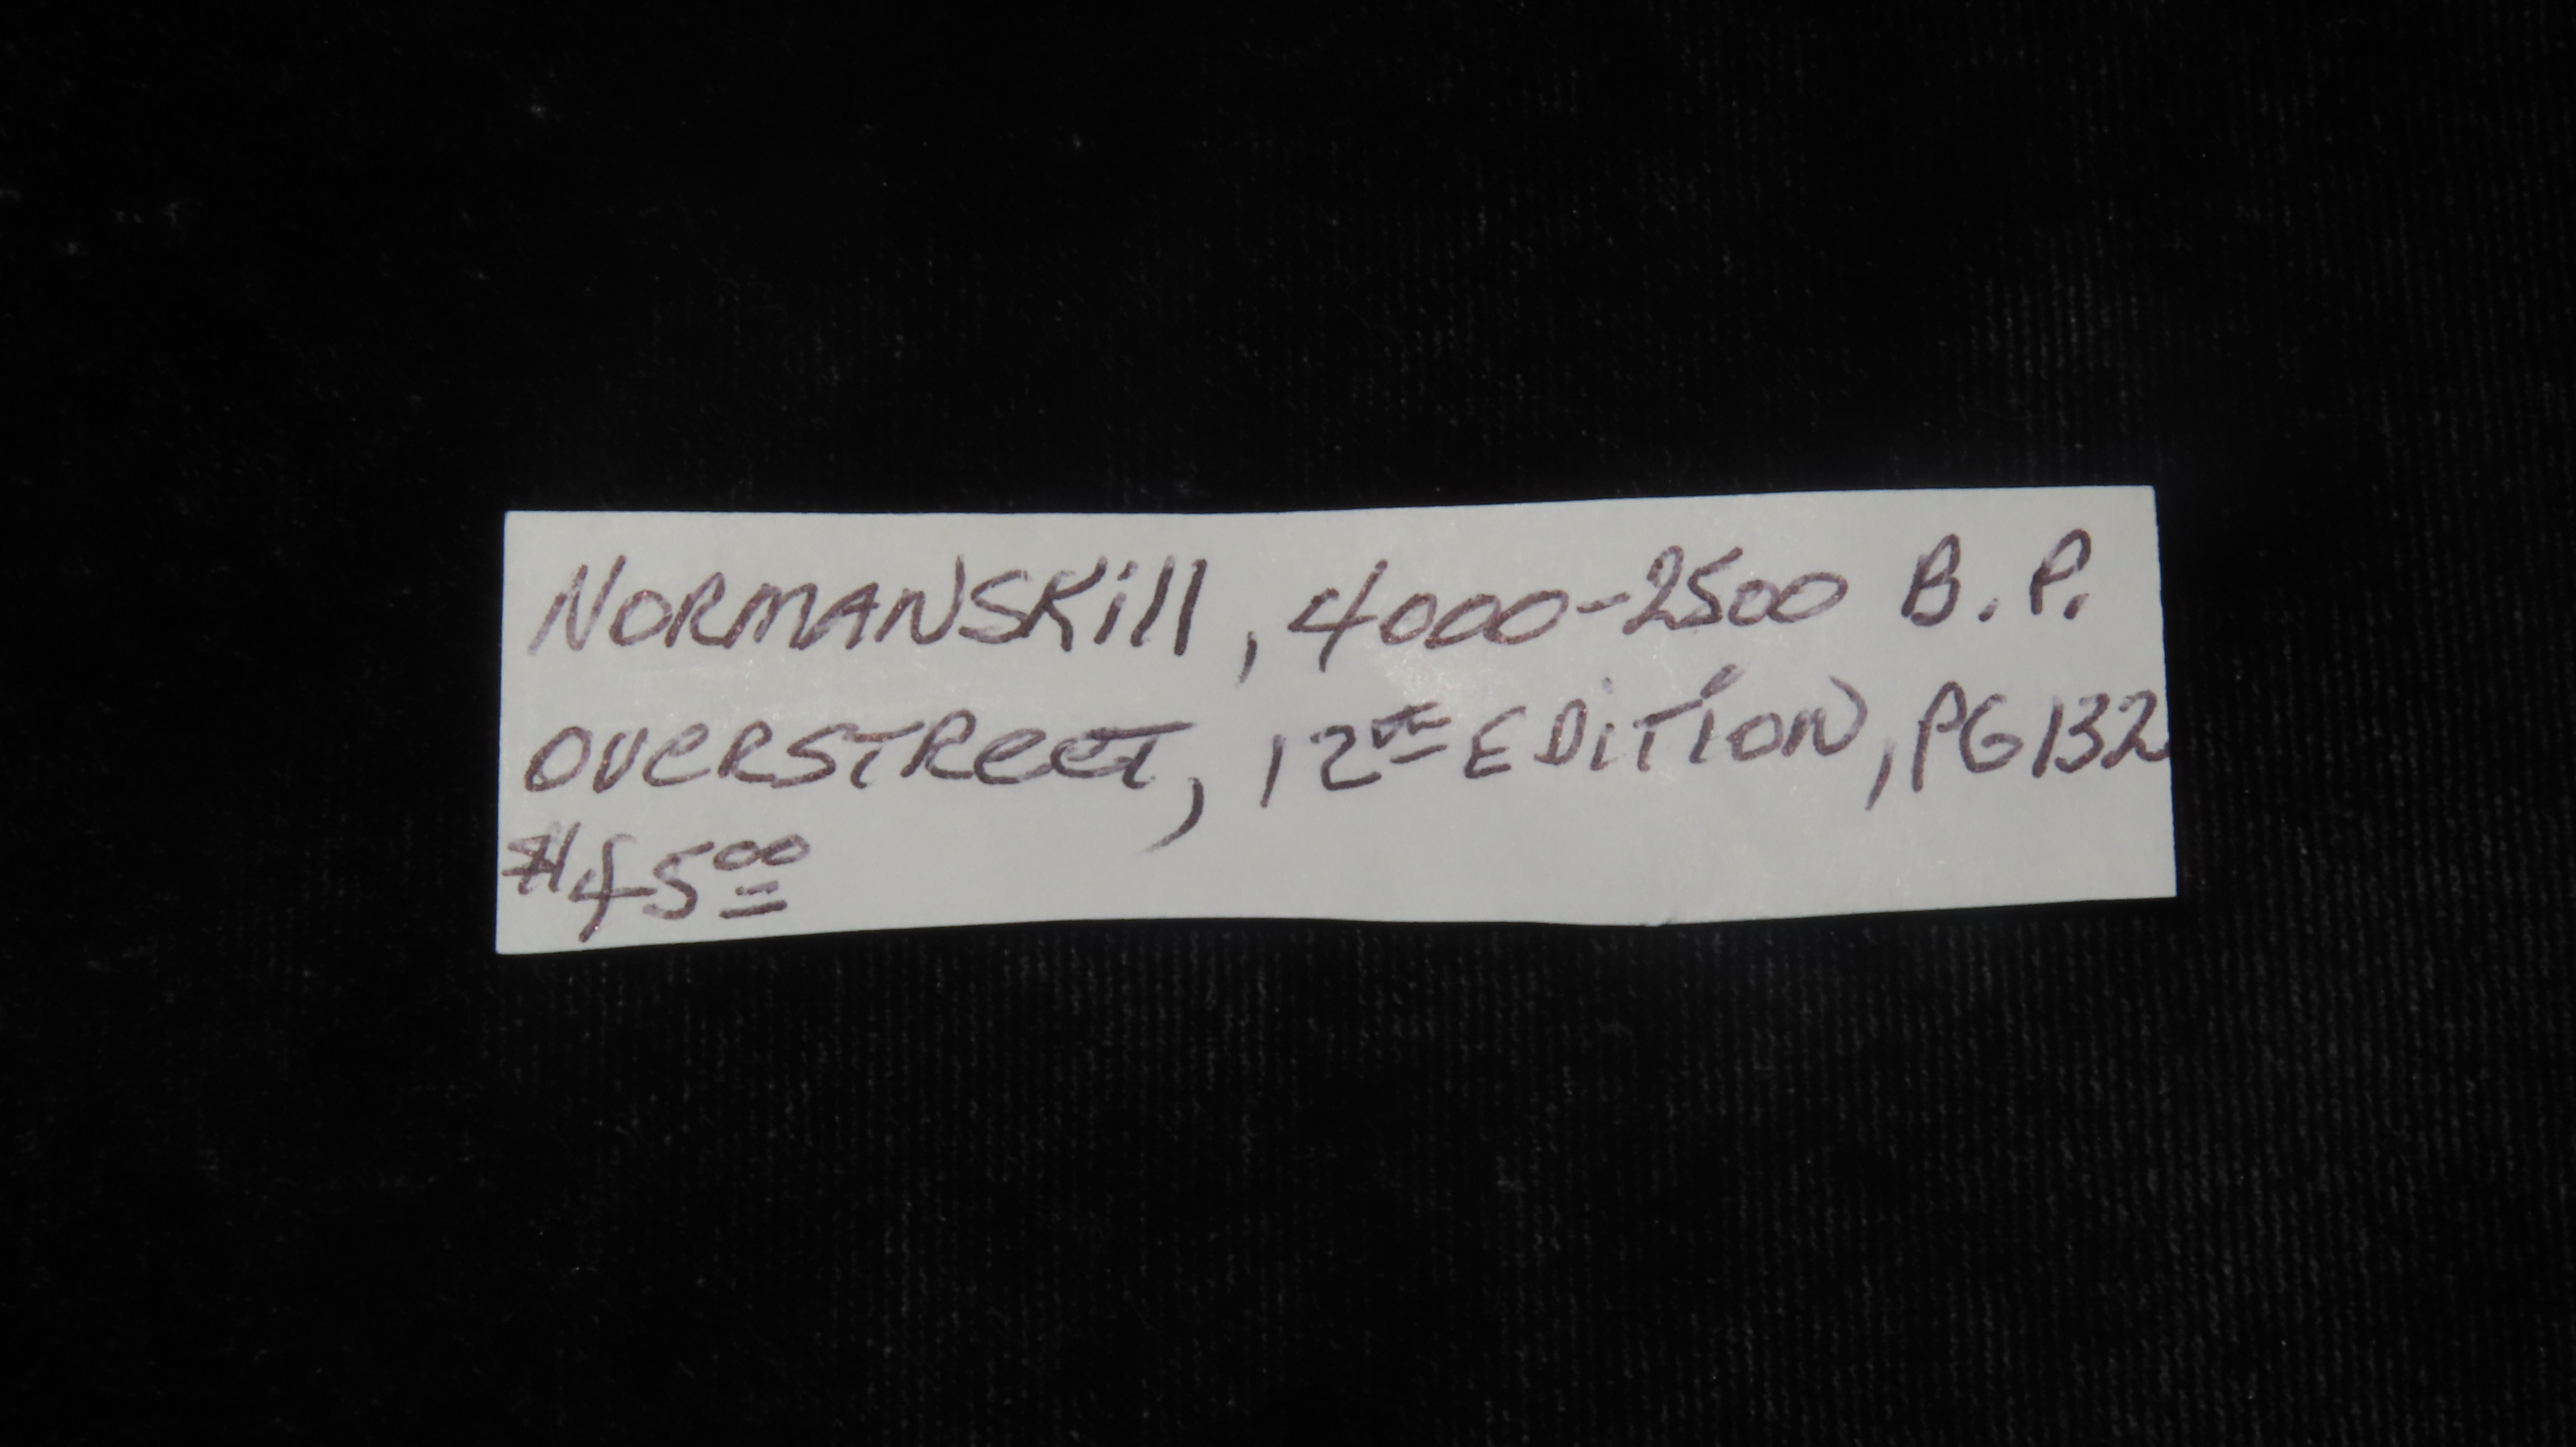 NORMANSKill, 4000-2500 B.P.
OVERSTREET, 12th EDITION, PG 132
$45.00